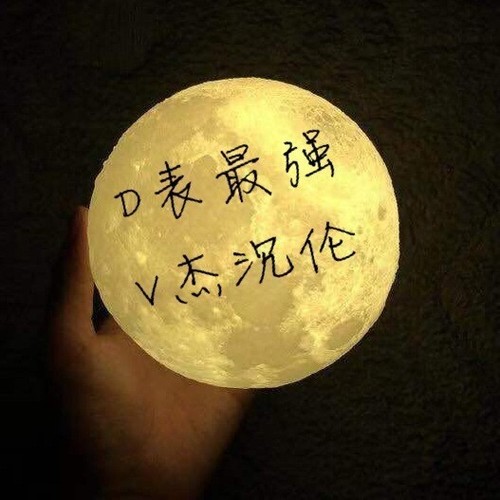 D表最强
V杰沉伦